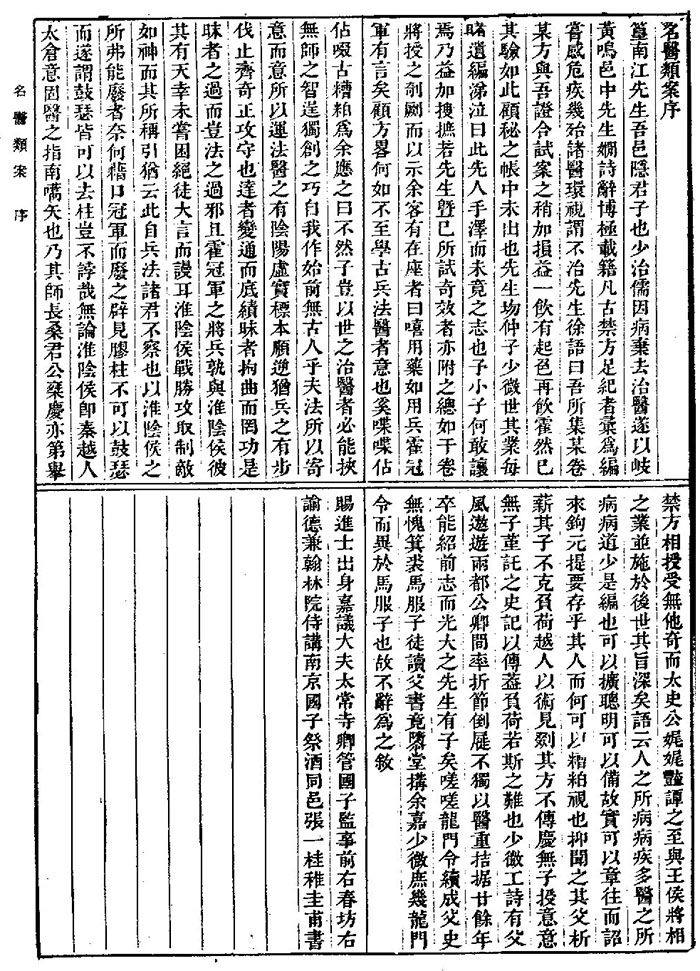 名醫類案序
篁南江先生吾邑隱君子也少治儒因病棄去治醫遂以岐
黃鳴邑中先生嫺詩辭博極載籍凡古禁方足紀者彙爲編
嘗感危疾幾殆諸醫環視謂不治先生徐語曰吾所集某卷
某方與吾證合試案之稍加損益一飲有起色再飲霍然已
其驗如此顧秘之帳中未出也先生歿仲子少微世其業每
睹遺編涕泣曰此先人手澤而未竟之志也予小子何敢讓
焉乃益加搜摭若先生曁已所試奇效者亦附之總如干卷
將授之剞劂而以示余客有在座者曰嘻用藥如用兵霍冠
軍有言矣顧方畧何如不至學古兵法醫者意也奚喋喋佔
佔啜古糟粕爲余應之曰不然子豈以世之治醫者必能挾
無師之智逞獨創之巧自我作始前無古人乎夫法所以寄
意而意所以運法醫之有陰陽虛實標本順逆猶兵之有步
伐止齊奇正攻守也達者變通而底績眛者拘曲而罔功是
眛者之過而豈法之過邪且霍冠軍之將兵孰與淮陰侯彼
其有天幸未嘗困絕徒大言而謾耳淮陰侯戰勝攻取制敵
如神而其所稱引猶云此自兵法諸君不察也以淮陰侯之
所弗能廢者奈何藉口冠軍而廢之辟見膠柱不可以鼓瑟
而遂謂鼓瑟皆可以去柱豈不誖哉無論淮陰侯卽秦越人
太倉意固醫之指南嚆矢也乃其師長桑君公椉慶亦第舉
禁方相授受無他奇而太史公娓娓豔譚之至與王侯將相
之業並施於後世其旨深矣語云人之所病病疾多醫之所
病病道少是編也可以擴聰明可以備故實可以章往而詔
來鉤元提要存乎其人而何可以糟粕視也抑聞之其父析
薪其子不克負荷越人以術見剟其方不傳慶無子授意意
無子堇託之史記以傳葢負荷若斯之難也少微工詩有父
風遨遊兩都公卿間率折節倒屣不獨以醫重拮据廿餘年
卒能紹前志而光大之先生有子矣嗟嗟龍門令續成父史
無愧箕裘馬服子徒讀父書竟墮堂搆余嘉少微庶幾龍門
令而異於馬服子也故不辭爲之敘
賜進士出身嘉議大夫太常寺卿管國子監事前右春坊右
諭德兼翰林院侍講南京國子祭酒同邑張一桂稚圭甫書
名醫類案 序